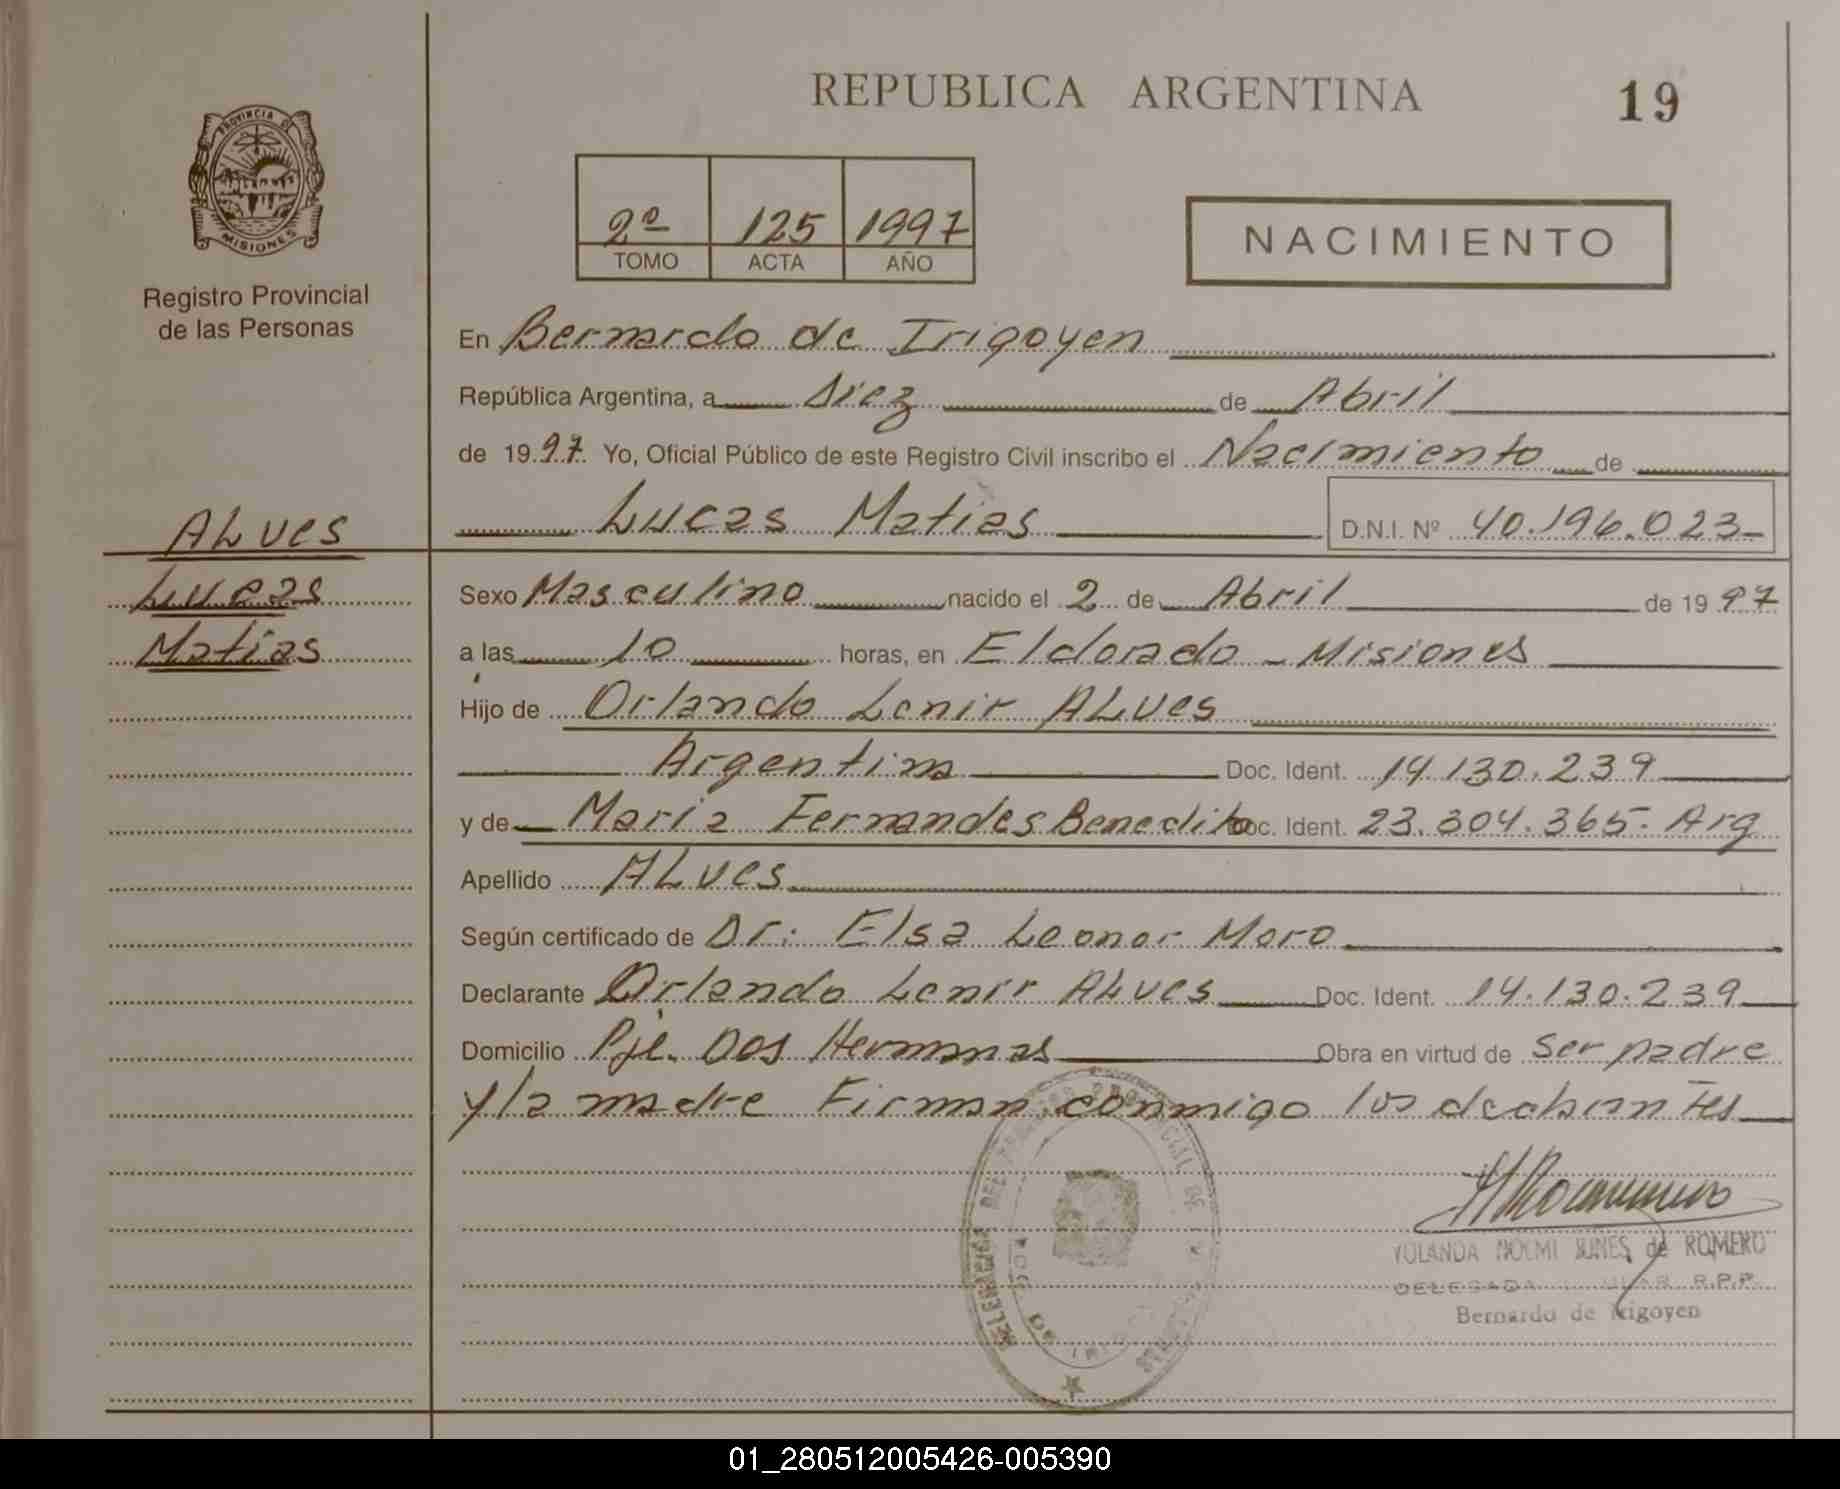 REPUBLICA ARGENTINA
19
PROVINCIA DE
MISIONES
Registro Provincial
de las Personas
2º 125 1997
TOMO ACTA AÑO
NACIMIENTO
En Bernardo de Irigoyen
República Argentina, a Diez de Abril
de 1997 Yo, Oficial Público de este Registro Civil inscribo el Nacimiento de
Lucas Matias D.N.I. Nº 40.196.023-
ALves
Lucas
Matias
Sexo Masculino nacido el 2 de Abril de 1997
a las 10 horas, en Eldorado - Misiones
Hijo de Orlando Lenir ALves
Argentina Doc. Ident. 14.130.239
y de Maria Fernandes Benedito Doc. Ident. 23.304.365- Arg
Apellido ALves
Según certificado de Dr: Elsa Leonor Moro
Declarante Orlando Lenir ALves Doc. Ident. 14.130.239
Domicilio Pje. Dos Hermanas Obra en virtud de ser padre
y la madre Firman conmigo los declarantes
YOLANDA NOEMI de ROMERO
DELEGADA R.P.P.
Bernardo de Irigoyen
01_280512005426-005390